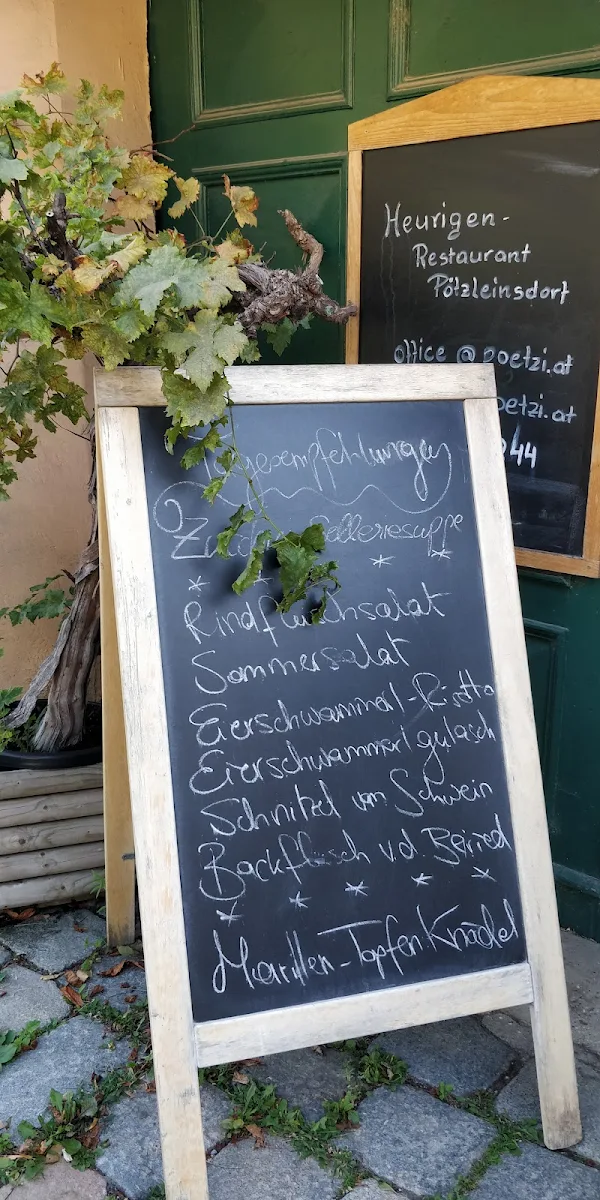 Heurigen-
Restaurant
Pötzleinsdorf
office @ poetzi.at
oetzi.at
44
Tagesempfehlungen
Selleriesuppe
* * *
Rindfleischsalat
Sommersalat
Eierschwammerl-Risotto
Eierschwammerlgulasch
Schnitzel vom Schwein
Backfleisch v.d. Beiried
* * * * *
Marillen-Topfen Knödel